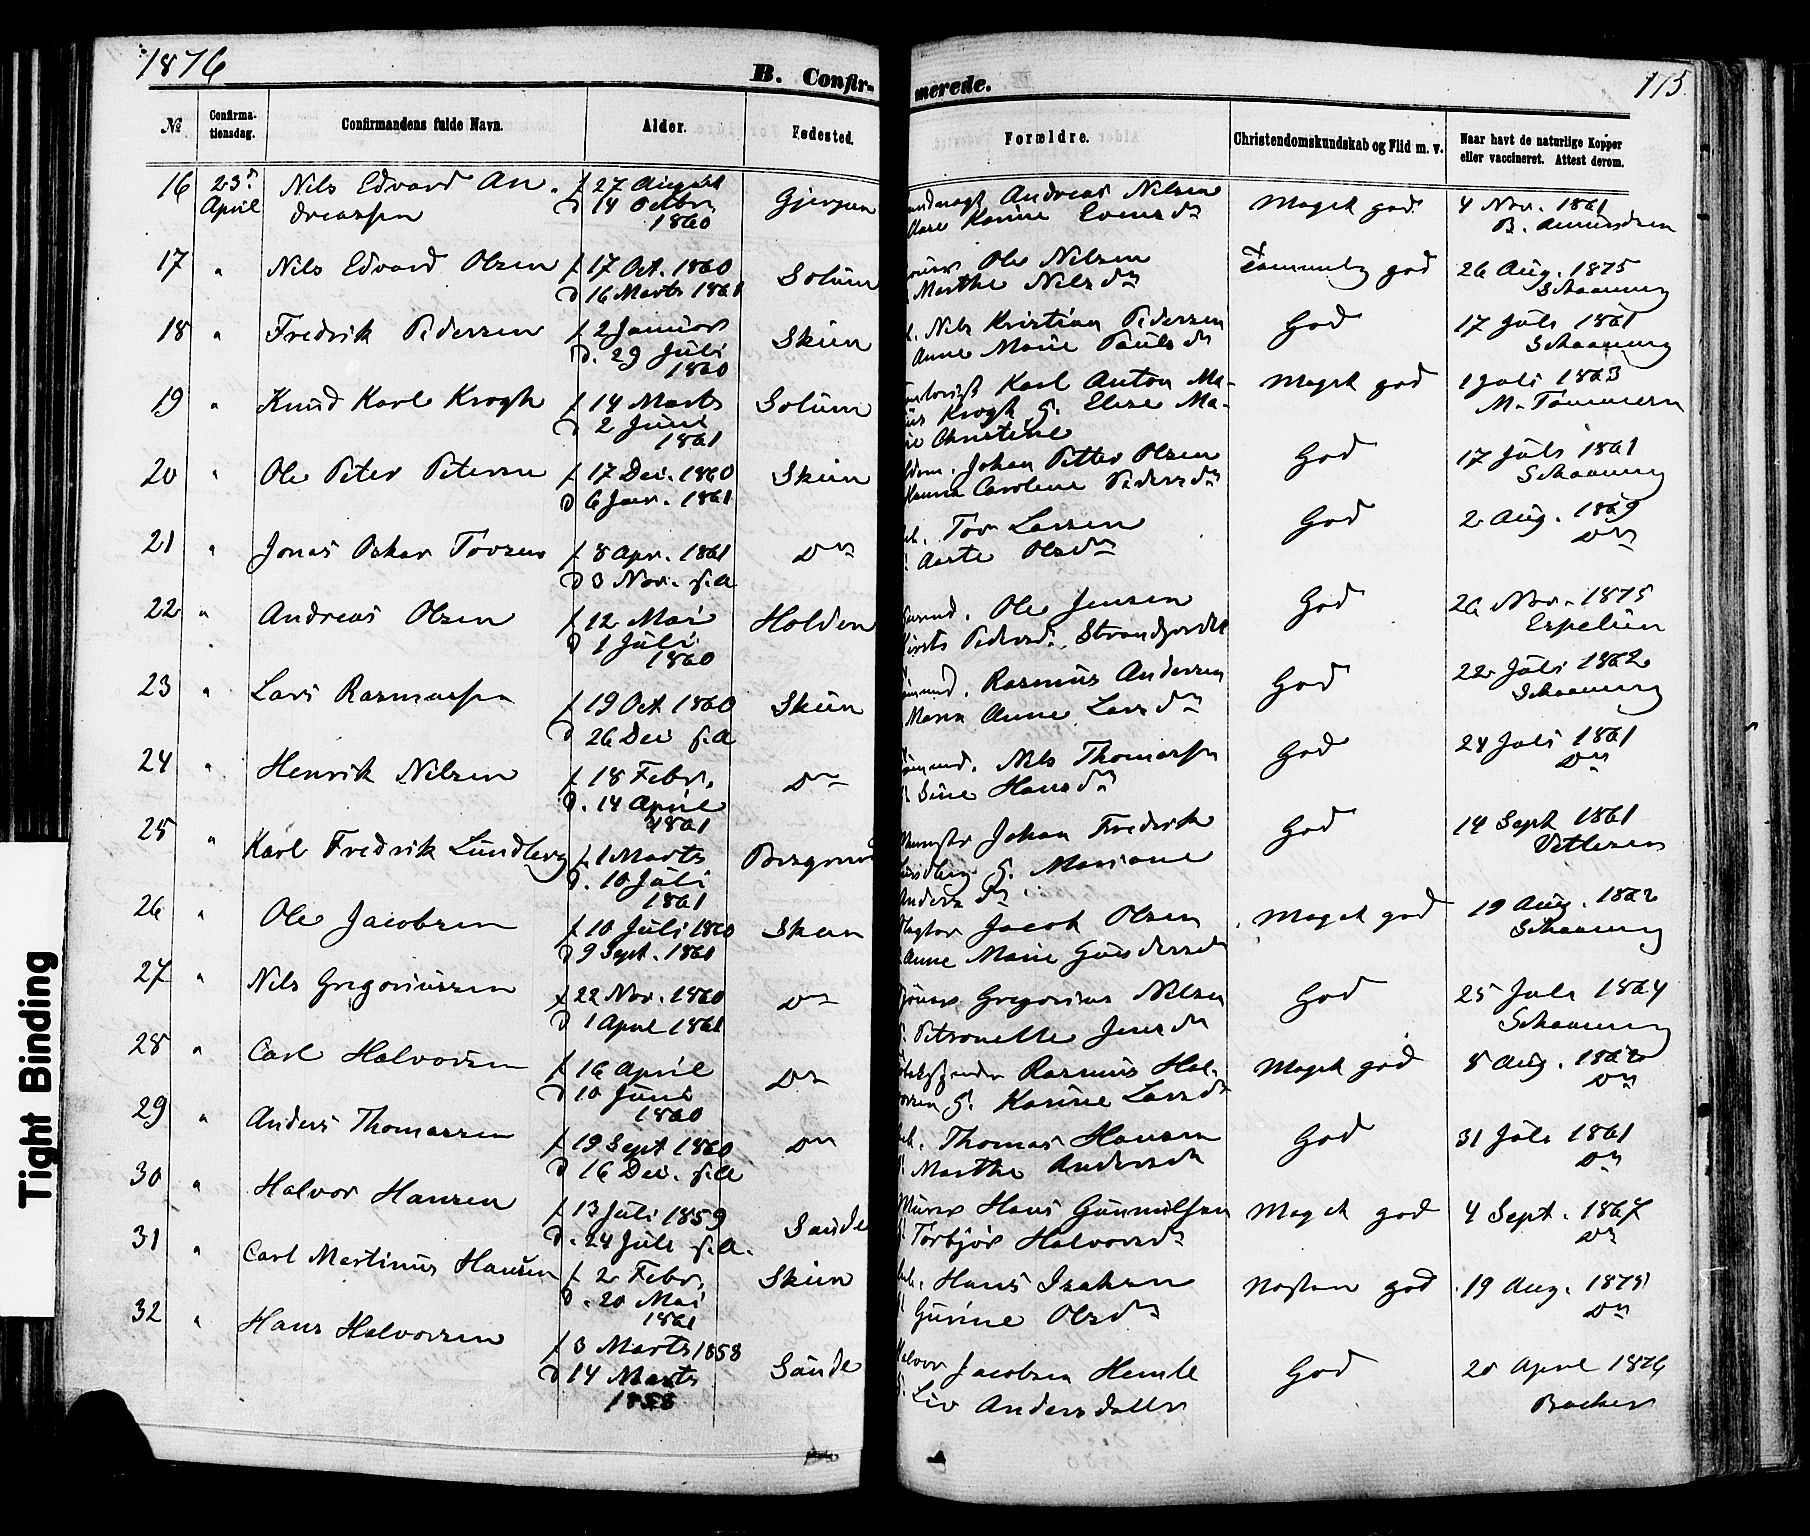 1876
B. Confir-
merede.
113.
№
Confirma-
tionsdag.
Confirmandens fulde Navn.
Alder.
Fødested.
Forældre.
Christendomskundskab og Flid m. v.
Naar havt de naturlige Kopper
eller vaccineret. Attest derom.
16 23de Nils Edvard An- f 27 August Andreas Nilsen Meget god 4 Nov. 1861
April dreassen d 14 Octbr Gjerpen Karine Evensdr B. Amundsen
1860
17 " Nils Edvard Olsen f 17 Oct. 1860 Solum Ole Nilsen Temmelig god 26 Aug. 1875
d 16 Marts 1861 Marthe Nilsdr Schaaning
18 " Fredrik Pedersen f 2 Januar Skien Nils Kristian Pedersen God 17 Juli 1861
d. 29 Juli Anne Marie Paulsdr Schaaning
1860
19 " Knud Karl Krogh f 14 Marts Solum Karl Anton Ma- Meget god 1 Juli 1863
d 2 Juni Krogh g. Elise Ma- M. Tommesen
1861 Christine
20 " Ole Peter Petersen f 17 Dec. 1860 Skien Johan Petter Olsen God 17 Juli 1861
d 6 Jan. 1861 Hanna Caroline Pedersdr Schaaning
21 " Jonas Oskar Torsen f 8 Apr. 1861 Do Tov Larsen God 2 Aug. 1869
d 3 Nov. s.A Aaste Olsdr Do
22 " Andreas Olsen f 12 Mai Holden Ole Jensen God 26 Nov. 1875
d 1 Juli Kirsti Pedersdr, Strandfjordet Espelien
1860
23 " Lars Rasmussen f 19 Oct. 1860 Skien Rasmus Andersen God 22 Juli 1862
d 26 Dec s.A Maren Anne Larsdr Schaaning
24 " Henrik Nilsen f 18 Febr. Do Nils Thomassen God 24 Juli 1861
d. 14 April Sine Hansdr Do
1861
25 " Karl Fredrik Lundberg f. 1 Marts Porsgrund Johan Fredrik God 14 Sept 1861
d. 10 Juli Lundberg g. Mariane Vetlesen
1861 Andersdr
26 " Ole Jacobsen f 10 Juli 1860 Skien Jacob Olsen Meget god 19 Aug. 1862
d 9 Sept. 1860 Anne Marie Gundersdr Schaaning
27 " Nils Gregoriussen f 22 Nov. 1860 Do Gregorius Nilsen God 25 Juli 1864
d 1 April 1861 Petronelle Jensdr Schaaning
28 " Carl Halvorsen f 16 April Do Rasmus Hal- Meget god 8 Aug. 1862
d 10 Juni vorsen g. Karine Larsdr Do
1860
29 " Anders Thomassen f 19 Sept 1860 Do Thomas Hansen God 31 Juli 1861
d 16 Dec. s.A Marthe Andersdr Do
30 " Halvor Hansen f 13 Juli 1859 Saude Murer Hans Gunnulfsen Meget god 4 Sept. 1867
d. 24 Juli s.A. Torbjør Halvorsdr Do
31 " Carl Martinus Hansen f 2 Febr. Skien Hans Isaksen Næsten god 19 Aug. 1875
d. 20 Mai Gurine Olsdr Do
1861
32 " Hans Halvorsen f 3 Marts 1858 Saude Halvor Jacobsen Hemle God 20 April 1876
d 14 Marts Liv Andersdatter Backer
1858
Tight Binding